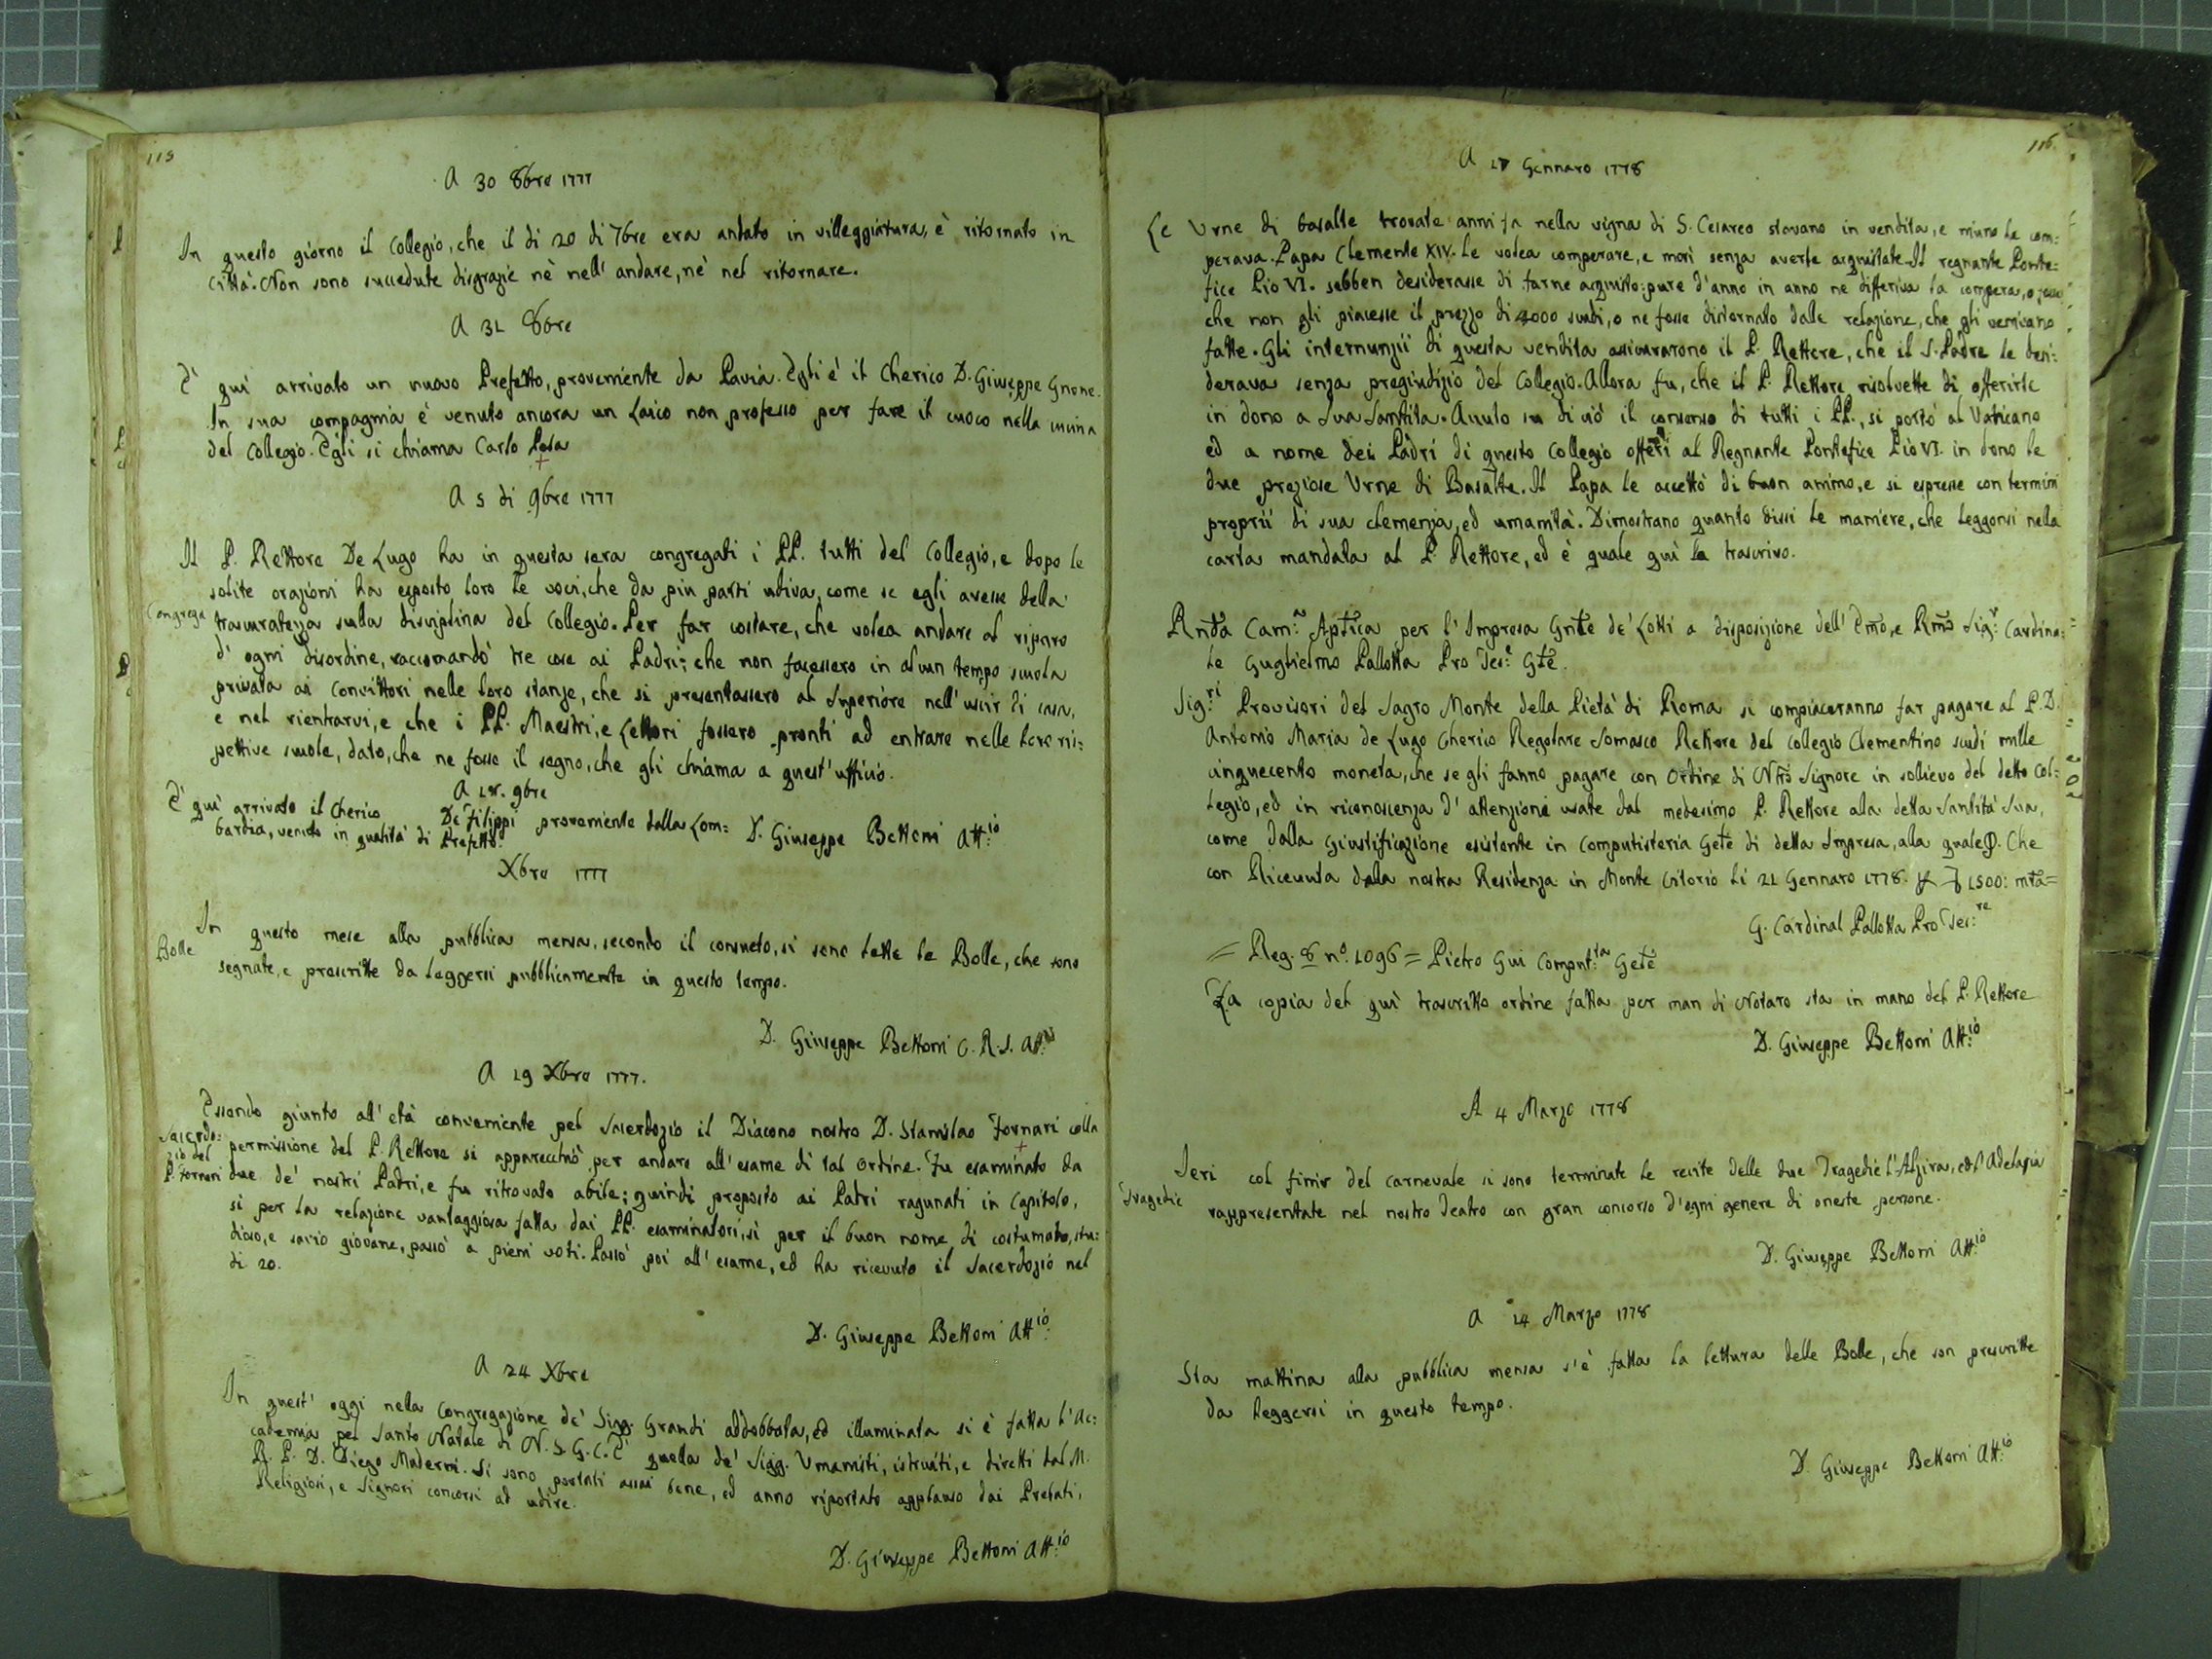 115
A 30 8bre 1777
In questo giorno il Collegio, che il dì 20 di 7bre era andato in villeggiatura, è ritornato in
Città. Non sono succedute disgrazie nè nell' andare, nè nel ritornare.
A 31 8bre
È quì arrivato un nuovo Prefetto, proveniente da Pavia. Egli è il Cherico D. Giuseppe Gnone.
In sua compagnia è venuto ancora un Laico non professo per fare il cuoco nella cucina
del Collegio. Egli si chiama Carlo
A 5 di 9bre 1777
Il P. Rettore De Lugo ha in questa sera congregati i PP. tutti del Collegio, e dopo le
solite orazioni ha esposto loro le voci, che da più parti udiva, come se egli avesse della
Congrega
trascuratezza sulla disciplina del Collegio. Per far costare, che volea andare al riparo
d' ogni disordine, raccomandò tre cose ai Padri; che non facessero in alcun tempo scuola
privata ai Convittori nelle loro stanze, che si presentassero al Superiore nell' uscir di casa,
e nel rientrarvi, e che i PP. Maestri, e Lettori fossero pronti ad entrare nelle loro ris:
pettive scuole, dato, che ne fosse il segno, che gli chiama a quest' ufficio.
A 9bre
È quì arrivato il Cherico De Filippi proveniente dalla Lom:
bardia, venuto in qualità di Prefetto.
D. Giuseppe Bettoni Att:io
Xbre 1777
In questo mese alla pubblica mensa, secondo il consueto, si sono lette le Bolle, che sono
Bolle
segnate, e prescritte da leggersi pubblicamente in questo tempo.
D. Giuseppe Bettoni C. R. S. Att:io
A 19 Xbre 1777.
Essendo giunto all' età conveniente pel Sacerdozio il Diacono nostro D. Stanislao Fornari colla
Sacerdo:
zio del
P. Fornari
permissione del P. Rettore si apparecchiò per andare all' esame di tal Ordine. Fu esaminato da
due de' nostri Padri, e fu ritrovato abile; quindi proposto ai Padri ragunati in Capitolo,
si per la relazione vantaggiosa fatta dai PP. esaminatori, sì per il buon nome di costumato, stu:
dioso, e savio giovane, passò a pieni voti. Passò poi all' esame, ed ha ricevuto il Sacerdozio nel
di 20.
D. Giuseppe Bettoni Att:io
A 24 Xbre
In quest' oggi nella Congregazione de' Sigg. Grandi addobbata, ed illuminata si è fatta l' Ac:
cademia pel Santo Natale di N. S. G. C. È quella de' Sigg. Umanisti, istruiti, e diretti dal M.
R. P. D. Diego Maderni. Si sono portati assai bene, ed anno riportato applauso dai Prelati,
Religiosi, e Signori concorsi ad udire.
D. Giuseppe Bettoni Att:io
116
A Gennaro 1778
Le Urne di basalte trovate anni fa nella vigna di S. Cesareo stavano in vendita, e niuno le com:
perava. Papa Clemente XIV. le volea comperare, e morì senza averle acquistate. Il regnante Ponte:
fice Pio VI. sebben desiderasse di farne acquisto: pure d'anno in anno ne differiva la compera, o
che non gli piacesse il prezzo di 4000 scudi, o ne fosse distornato dalle relazione, che gli venivano
fatte. Gli internunzii di questa vendita assicurarono il P. Rettore, che il S. Padre le desi:
derava senza pregiudizio del Collegio. Allora fu, che il P. Rettore risolvette di offerirle
in dono a Sua Santità. Avuto su di ciò il consenso di tutti i PP., si portò al Vaticano
ed a nome dei Padri di questo Collegio offerì al Regnante Pontefice Pio VI. in dono le
due preziose Urne di Basalte. Il Papa le accettò di buon animo, e si espresse con termini
proprii di sua clemenza, ed umanità. Dimostrano quanto dissi le maniere, che leggonsi nella
carta mandata al P. Rettore, ed è quale quì la trascrivo.
Rnda Cam:a Aptica per l' Impresa Gnte de' Lotti a disposizione dell' Emo, e Rmo Sig:r Cardina:
le Guglielmo Pallotta Pro Tes:e Gte.
Sig:ri Provisori del Sagro Monte della Pietà di Roma si compiaceranno far pagare al P. D.
Antonio Maria de Lugo Cherico Regolare Somasco Rettore del Collegio Clementino scudi mille
cinquecento moneta, che se gli fanno pagare con Ordine di Nro Signore in sollievo del detto Col:
legio, ed in riconoscenza d' attenzioni usate dal medesimo P. Rettore alla detta Santità Sua,
come dalla Giustificazione esistente in Computisteria Gnte di detta Impresa, alla quale Che
con Ricevuta dalla nostra Residenza in Monte Citorio li 21 Gennaro 1778. 1500: mta=
G. Cardinal Pallotta Pro Tes:re
= Reg. 8 n°. 1096 = Pietro Gui Comput:ta Gnte
La copia del quì trascritto ordine fatta per man di Notaro sta in mano del P. Rettore
D. Giuseppe Bettoni Att:io
A 4 Marzo 1778
Jeri col finir del carnevale si sono terminate le recite delle due Tragedie l'Alzira, ed l'Adelasia
Tragedie
rappresentate nel nostro Teatro con gran concorso d'ogni genere di oneste persone.
D. Giuseppe Bettoni Att:io
A 14 Marzo 1778
Sta mattina alla pubblica mensa s'è fatta la lettura delle Bolle, che son prescritte
da leggersi in questo tempo.
D. Giuseppe Bettoni Att:io